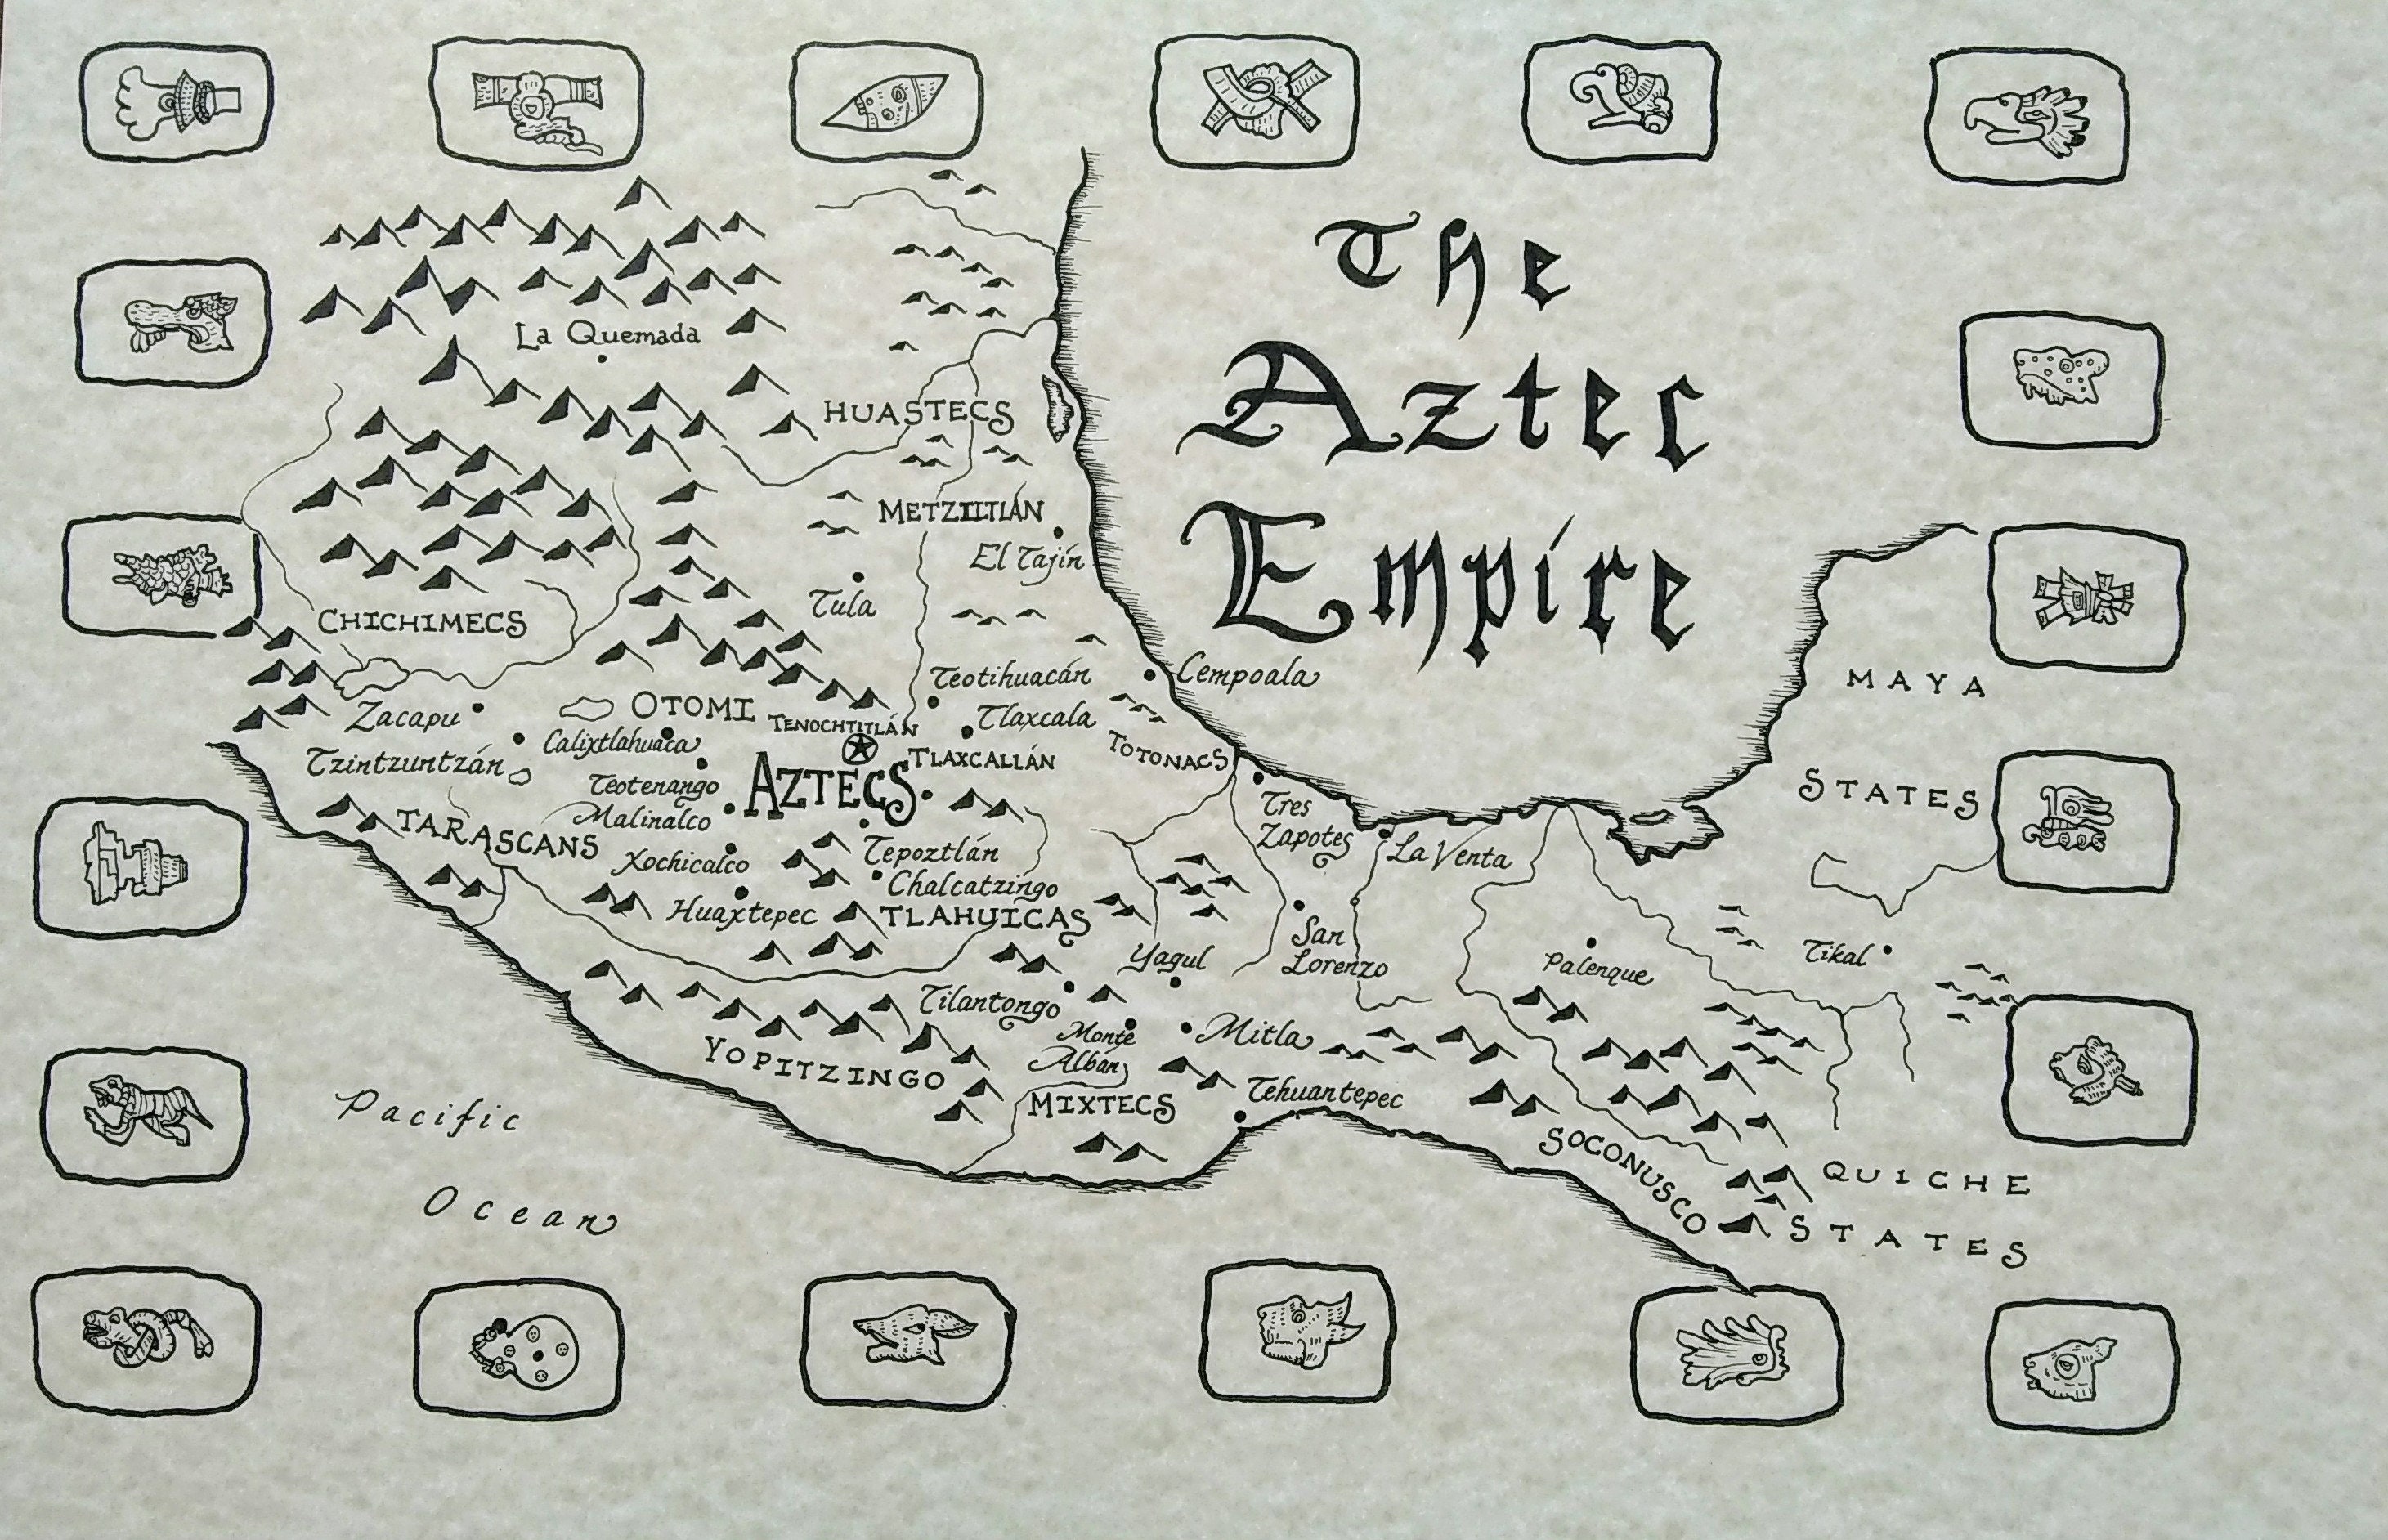 The
Aztec
Empire
La Quemada
HUASTECS
METZTITLÁN
El Tajín
Tula
CHICHIMECS
Teotihuacán
Cempoala
MAYA
STATES
Zacapu
OTOMI
TENOCHTITLÁN
Tlaxcala
Calixtlahuaca
Tzintzuntzán
TLAXCALLÁN
TOTONACS
Teotenango
AZTECS
Malinalco
Tres
Zapotes
TARASCANS
La Venta
Xochicalco
Tepoztlán
Chalcatzingo
Huaxtepec
TLAHUICAS
San
Lorenzo
Yagul
Palenque
Tikal
Tilantongo
Monte
Albán
Mitla
YOPITZINGO
MIXTECS
Tehuantepec
Pacific
Ocean
SOCONUSCO
QUICHE
STATES